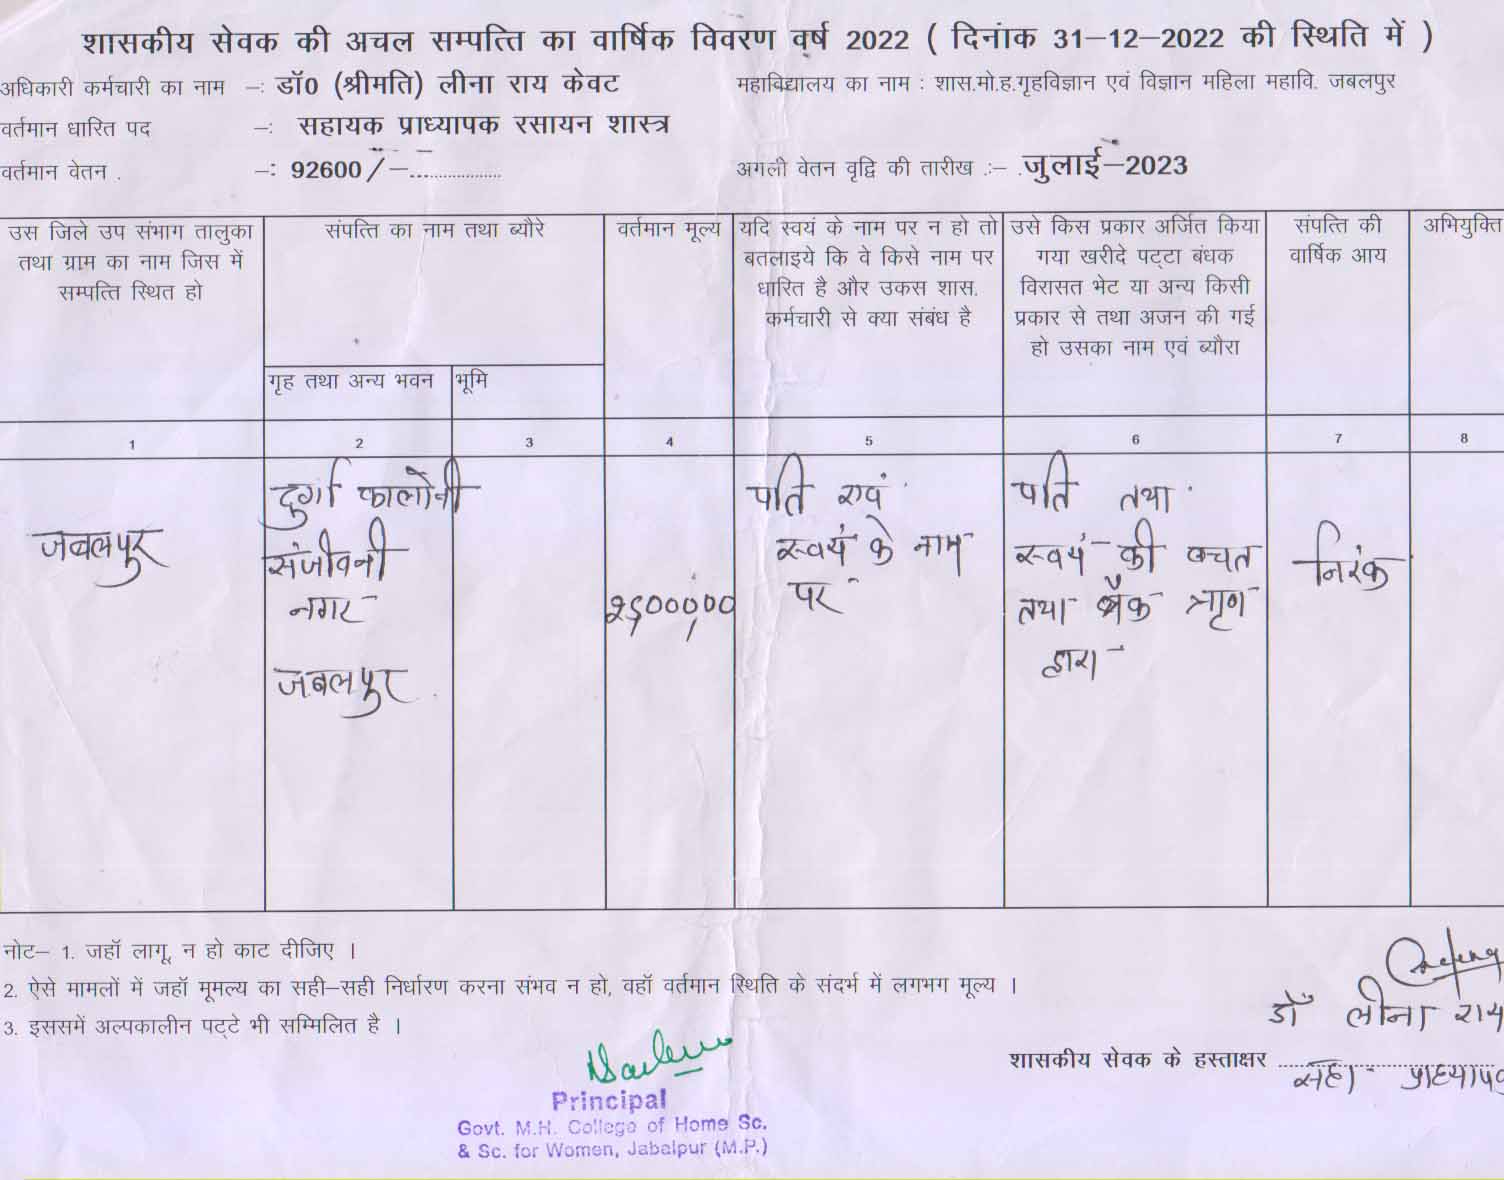 शासकीय सेवक की अचल सम्पत्ति का वार्षिक विवरण वर्ष 2022 ( दिनांक 31–12–2022 की स्थिति में )
अधिकारी कर्मचारी का नाम –: डॉ0 (श्रीमति) लीना राय केवट
महाविद्यालय का नाम : शास.मो.ह.गृहविज्ञान एवं विज्ञान महिला महावि. जबलपुर
वर्तमान धारित पद –: सहायक प्राध्यापक रसायन शास्त्र
वर्तमान वेतन . –: 92600/–..................
अगली वेतन वृद्वि की तारीख :– .जुलाई–2023
उस जिले उप संभाग तालुका
तथा ग्राम का नाम जिस में
सम्पत्ति स्थित हो
संपत्ति का नाम तथा ब्यौरे
गृह तथा अन्य भवन
भूमि
वर्तमान मूल्य
यदि स्वयं के नाम पर न हो तो
बतलाइये कि वे किसे नाम पर
धारित है और उकस शास.
कर्मचारी से क्या संबंध है
उसे किस प्रकार अर्जित किया
गया खरीदे पट्टा बंधक
विरासत भेट या अन्य किसी
प्रकार से तथा अजन की गई
हो उसका नाम एवं ब्यौरा
संपत्ति की
वार्षिक आय
अभियुक्ति
1 2 3 4 5 6 7 8
जबलपुर
दुर्गा कालोनी
संजीवनी
नगर
जबलपुर
पति एवं
स्वयं के नाम
पर
पति तथा
स्वयं की बचत
तथा बैंक ऋण
द्वारा
निरंक
नोट– 1. जहॉ लागू न हो काट दीजिए ।
2. ऐसे मामलों में जहॉ मूमल्य का सही–सही निर्धारण करना संभव न हो, वहॉ वर्तमान स्थिति के संदर्भ में लगभग मूल्य ।
3. इससमें अल्पकालीन पट्टे भी सम्मिलित है ।
डॉ लीना राय
शासकीय सेवक के हस्ताक्षर ..............................
सहा. प्राध्यापक
Principal
Govt. M.H. College of Home Sc.
& Sc. for Women, Jabalpur (M.P.)